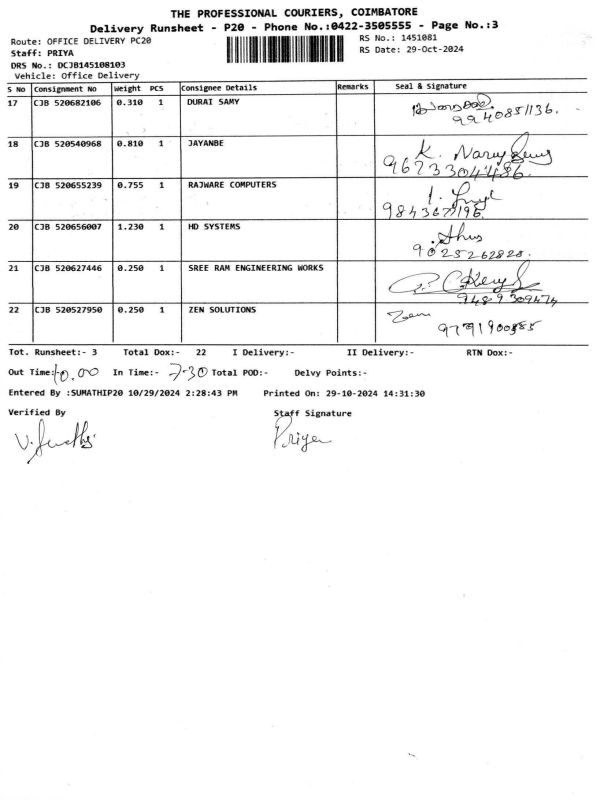 THE PROFESSIONAL COURIERS, COIMBATORE
Delivery Runsheet - P20 - Phone No.:0422-3505555 - Page No.:3
Route: OFFICE DELIVERY PC20 RS No.: 1451081
Staff: PRIYA RS Date: 29-Oct-2024
DRS No.: DCJB145108103
Vehicle: Office Delivery
S No Consignment No Weight PCS Consignee Details Remarks Seal & Signature
17 CJB 520682106 0.310 1 DURAI SAMY
9940851136.
18 CJB 520540968 0.810 1 JAYANBE K.
9623304486.
19 CJB 520655239 0.755 1 RAJWARE COMPUTERS
20 CJB 520656007 1.230 1 HD SYSTEMS
9025262828.
21 CJB 520627446 0.250 1 SREE RAM ENGINEERING WORKS
9489309474
22 CJB 520527950 0.250 1 ZEN SOLUTIONS
Tot. Runsheet:- 3 Total Dox:- 22 I Delivery:- II Delivery:- RTN Dox:-
Out Time:- 10.00 In Time:- 7-30 Total POD:- Delvy Points:-
Entered By :SUMATHIP20 10/29/2024 2:28:43 PM Printed On: 29-10-2024 14:31:30
Verified By Staff Signature
Priya